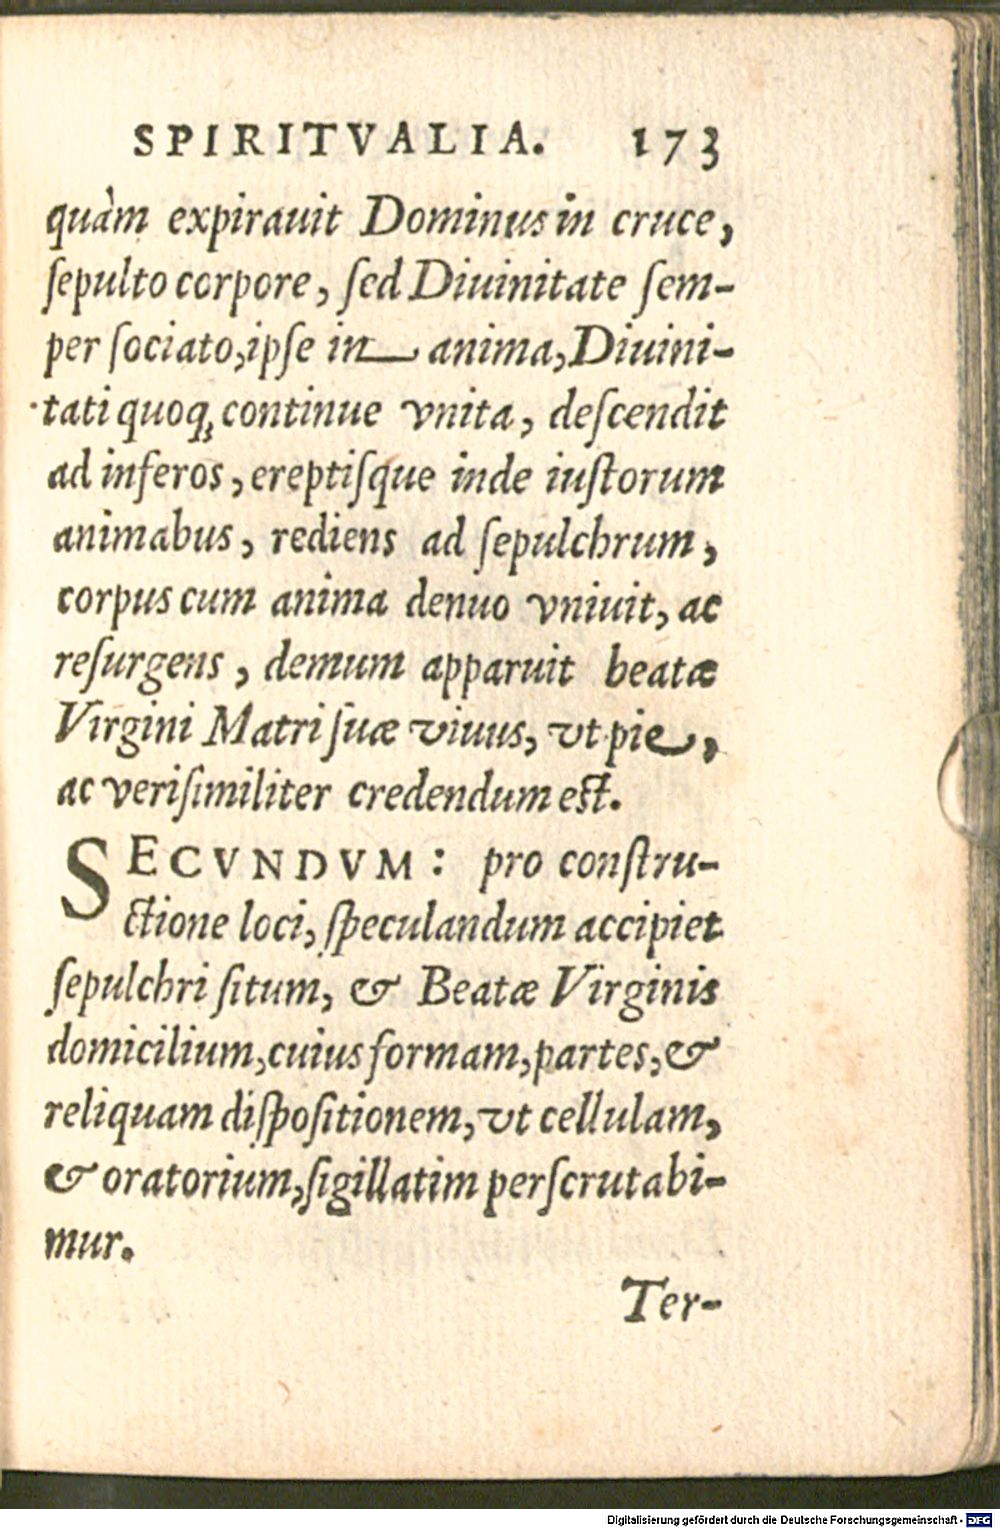 SPIRITVALIA. 173
quàm expirauit Dominus in cruce,
ſepulto corpore, ſed Diuinitate ſem-
per ſociato, ipſe in anima, Diuini-
tati quoq; continue vnita, deſcendit
ad inferos, ereptiſque inde iuſtorum
animabus, rediens ad ſepulchrum,
corpus cum anima denuo vniuit, ac
reſurgens, demum apparuit beatæ
Virgini Matri ſuæ viuus, vt pie,
ac veriſimiliter credendum eſt.
SECVNDVM: pro conſtru-
ctione loci, ſpeculandum accipiet
ſepulchri ſitum, & Beatæ Virginis
domicilium, cuius formam, partes, &
reliquam diſpoſitionem, vt cellulam,
& oratorium, ſigillatim perſcrutabi-
mur.
Ter-
Digitalisierung gefördert durch die Deutsche Forschungsgemeinschaft - DFG